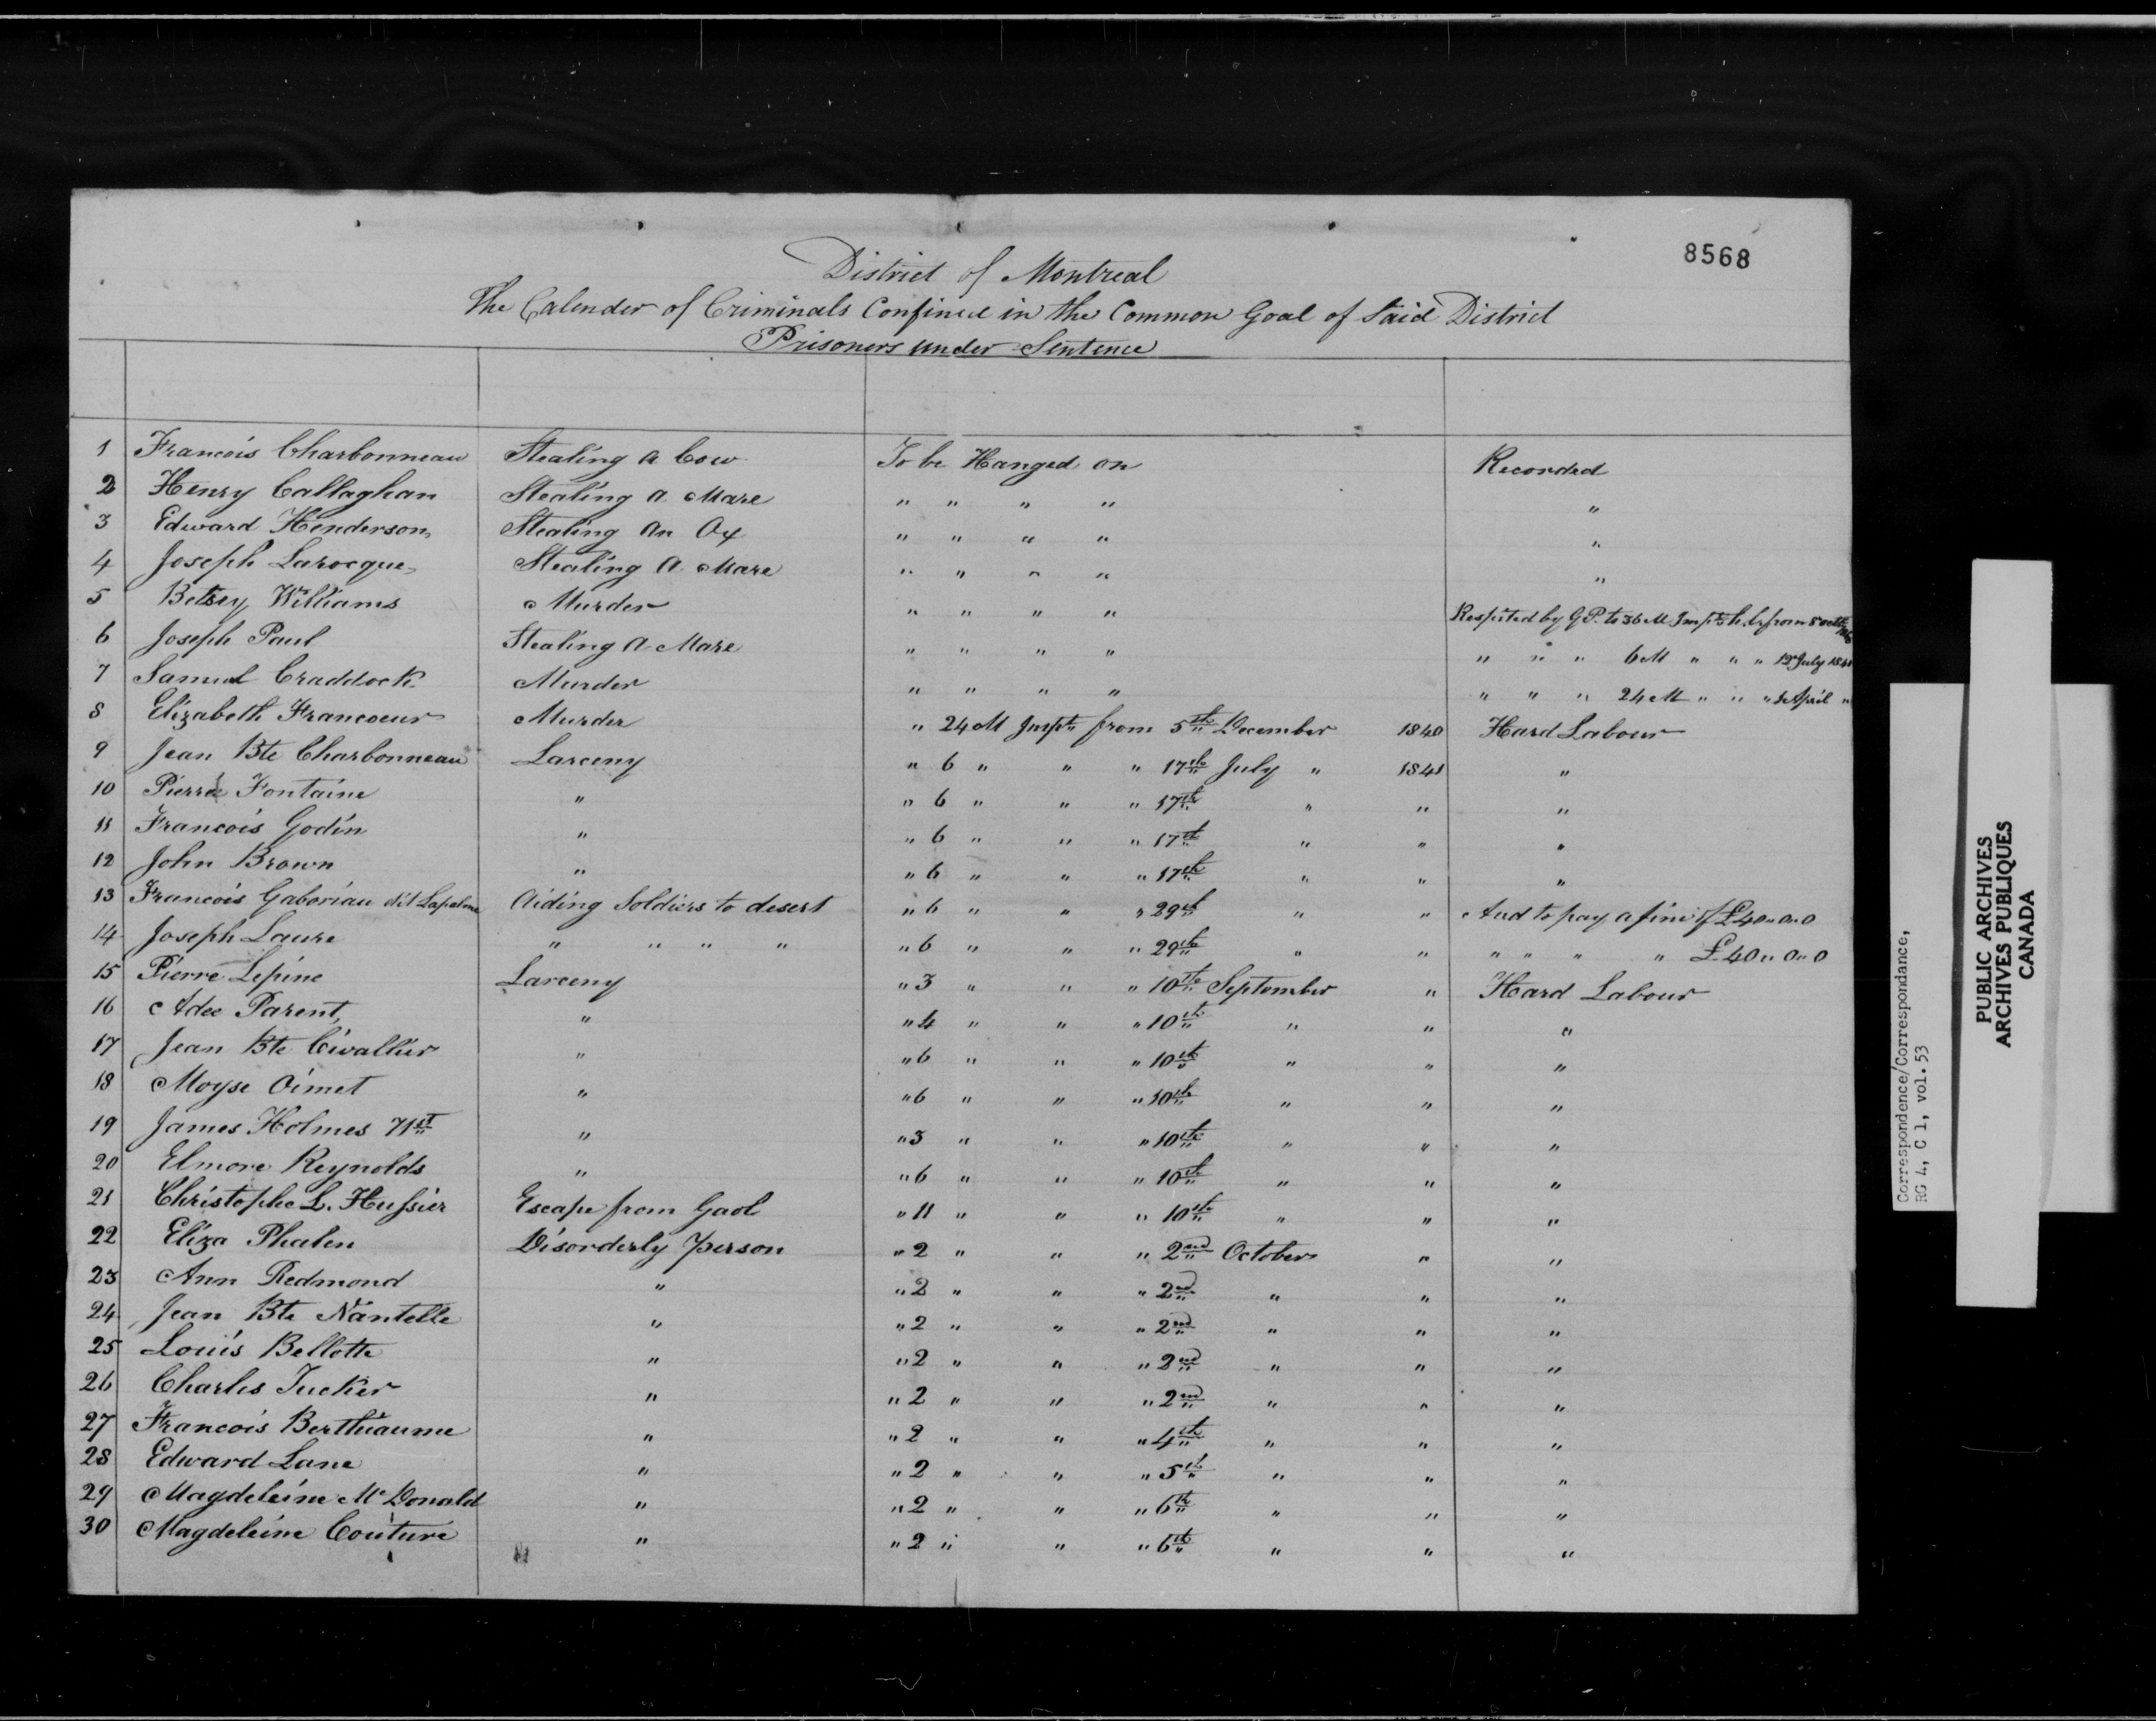 8568
District of Montreal
The Calender of Criminals Confined in the Common Goal of Said District
Prisoners under Sentence
1 Francois Charbonneau Stealing a Cow To be Hanged on Recorded
2 Henry Callaghan Stealing a Mare " " " " "
3 Edward Henderson Stealing an Ox " " " " "
4 Joseph Larocque Stealing a Mare " " " " "
5 Betsey Williams Murder " " " " Respited by G P. to 36 M Impt h. l. from 8 octr
6 Joseph Paul Stealing a Mare " " " " " " " 6 M " " " 12 July 1841
7 Samuel Craddock Murder " " " " " " " 24 M " " " April "
8 Elizabeth Francoeur Murder " 24 M Impt. from 5th December 1840 Hard Labour
9 Jean Bte Charbonneau Larceny " 6 " " " 17th July " 1841 "
10 Pierre Fontaine " " 6 " " " 17th " " "
11 Francois Godin " " 6 " " " 17th " " "
12 John Brown " " 6 " " " 17th " " "
13 Francois Gaboriau dit Lapalme Aiding Soldiers to desert " 6 " " " 29th " " And to pay a fine of £40 " 0 " 0
14 Joseph Laure " " " " " 6 " " " 29th " " " " " " £40 " 0 " 0
15 Pierre Lepine Larceny " 3 " " " 10th September " Hard Labour
16 Adee Parent " " 4 " " " 10th " " "
17 Jean Bte Civallier " " 6 " " " 10th " " "
18 Moyse Oimet " " 6 " " " 10th " " "
19 James Holmes 71st " " 3 " " " 10th " " "
20 Elmore Reynolds " " 6 " " " 10th " " "
21 Christophe L. Hussier Escape from Gaol " 11 " " " 10th " " "
22 Eliza Phalen Disorderly person " 2 " " " 2nd October " "
23 Ann Redmond " " 2 " " " 2nd " " "
24 Jean Bte Nantelle " " 2 " " " 2nd " " "
25 Louis Bellotte " " 2 " " " 2nd " " "
26 Charles Tucker " " 2 " " " 2nd " " "
27 Francois Berthiaume " " 2 " " " 4th " " "
28 Edward Lane " " 2 " " " 5th " " "
29 Magdeleine Mc Donald " " 2 " " " 6th " " "
30 Magdeleine Couture " " 2 " " " 6th " " "
Correspondence/Correspondance,
RG 4, C 1, vol. 53
PUBLIC ARCHIVES
ARCHIVES PUBLIQUES
CANADA